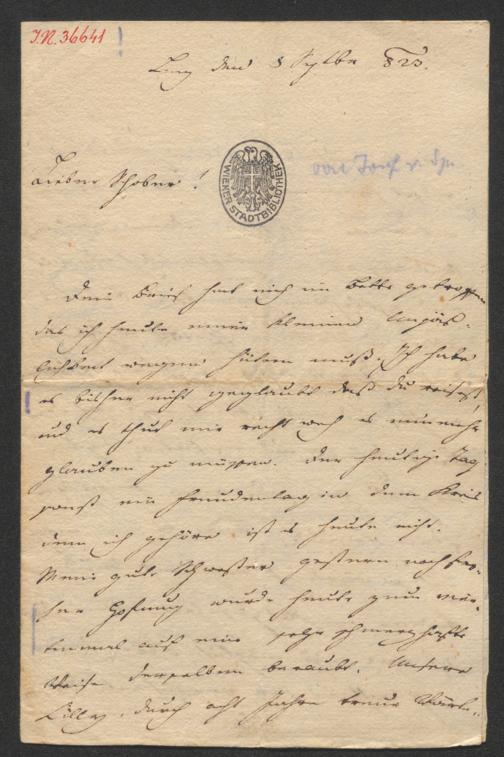 I.N. 36641
Linz den 8 Septbr 823.
WIENER STADTBIBLIOTHEK
von Josef v. Sp.
Lieber Schober!
Dein Brief hat mich im Bette getroffen
das ich heute einer kleinen Unpäs-
lichkeit wegen hüten muß. Ich habe
es bisher nicht geglaubt daß du reisest,
und es thut mir recht weh es nunmehr
glauben zu müssen. Der heutige Tag
sonst ein Freudentag in dem Kreis
dem ich gehöre ist es heute nicht.
Meine gute Schwester gestern noch
Hofnung wurde heute zum
auf eine sehr schmerzhafte
Weise derselben beraubt. Unsere
durch acht Jahre treue